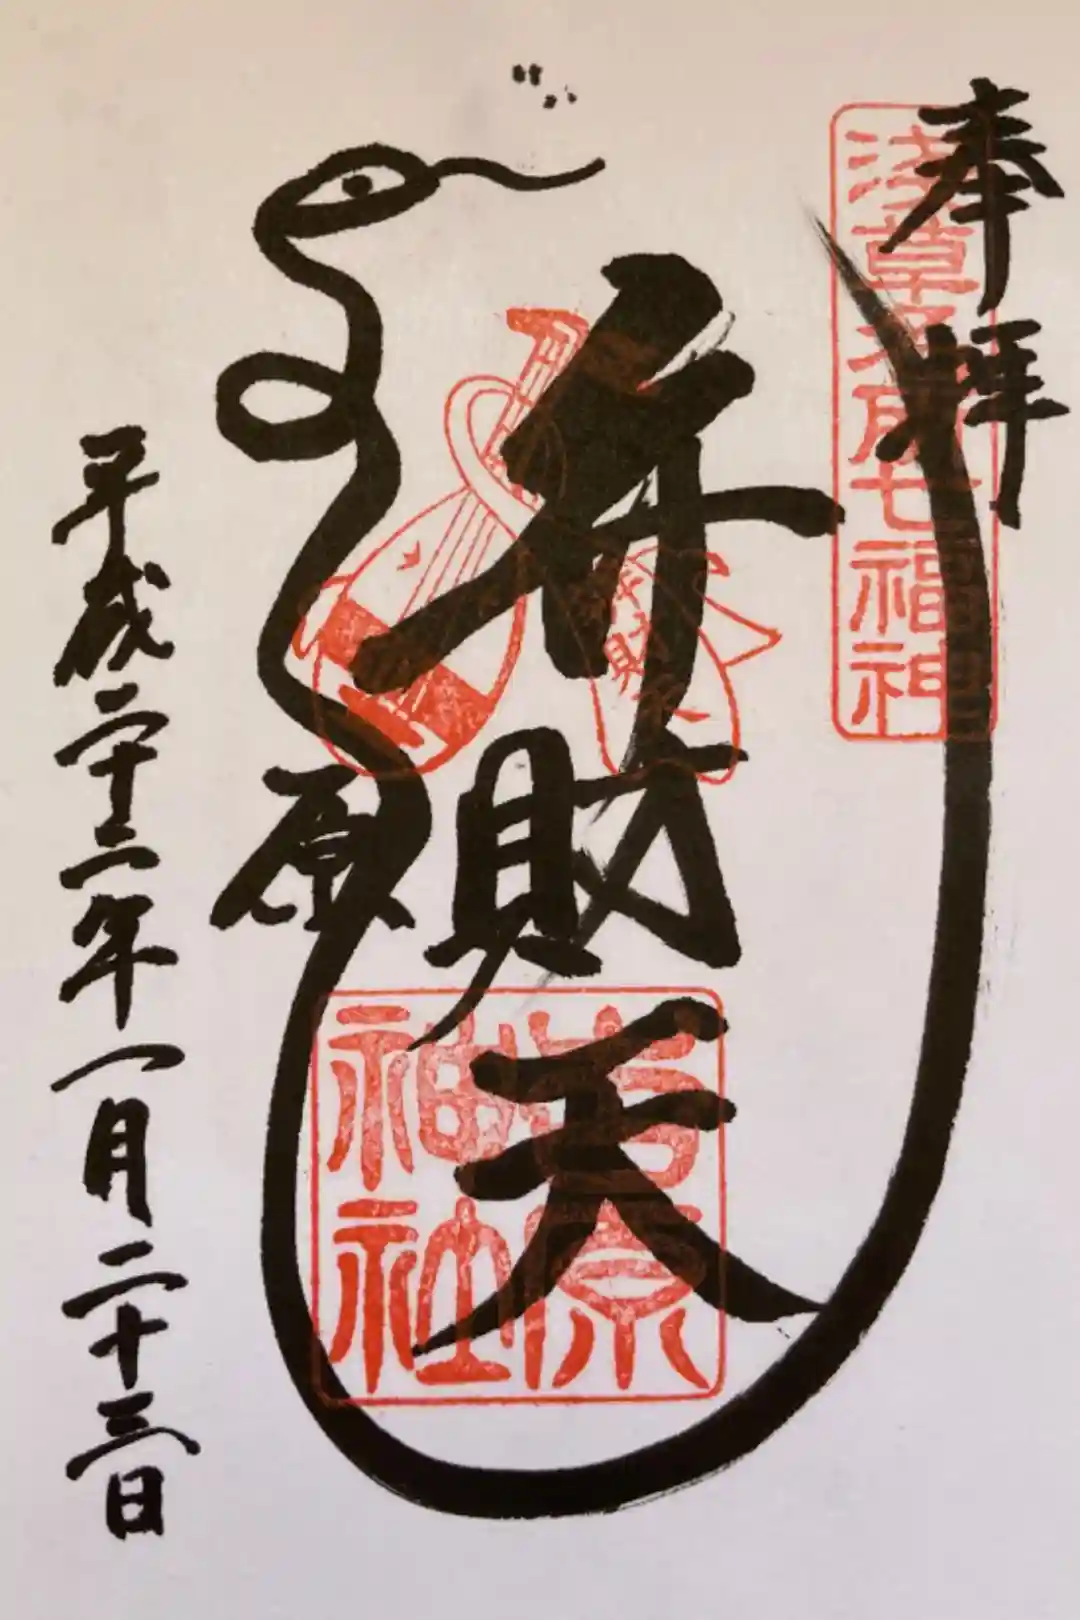 奉拝
浅草名所七福神
弁財天
弁財天
吉原
神社
原
平成二十二年一月二十三日